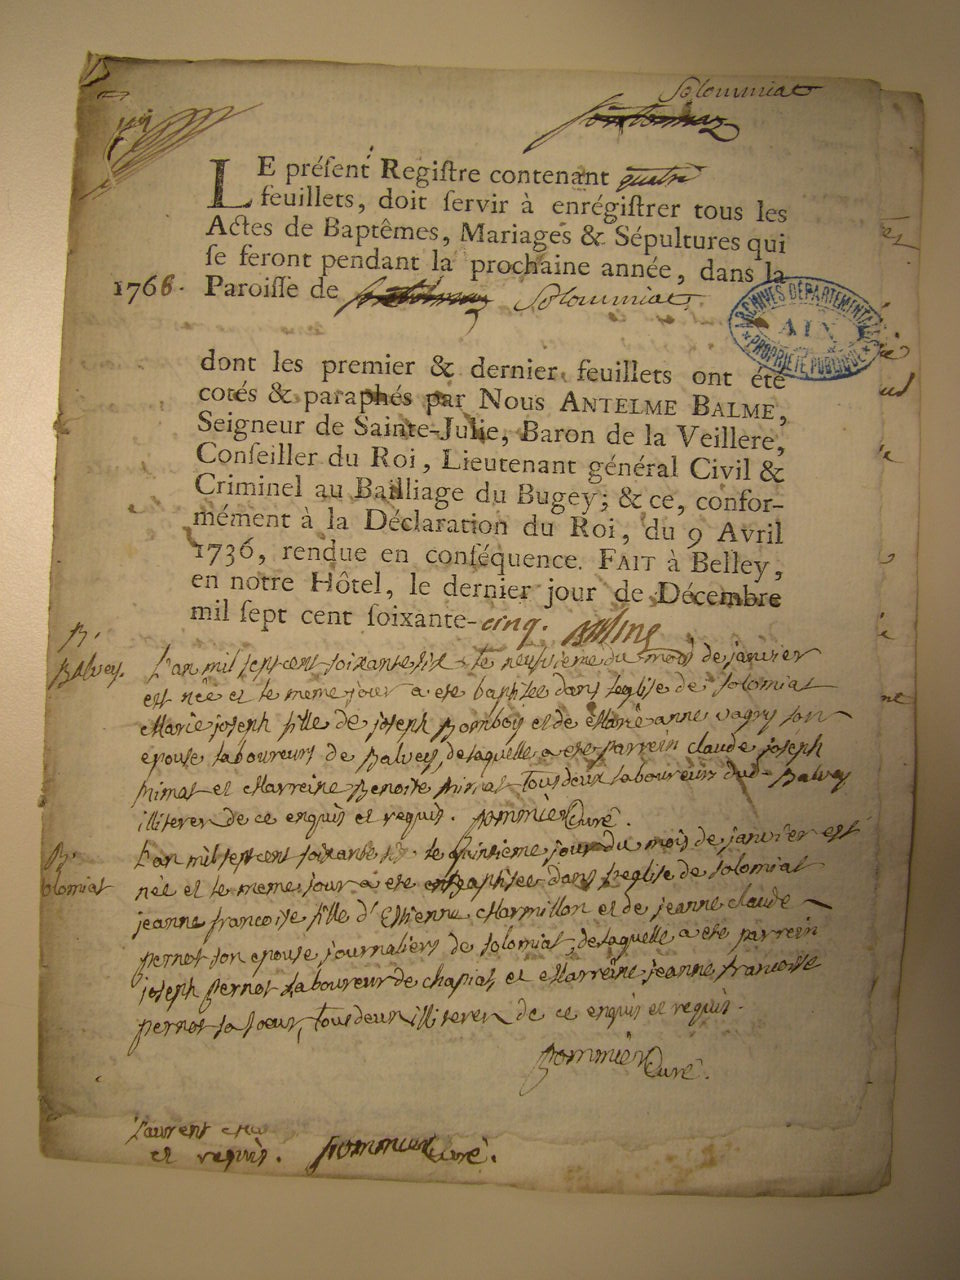 Solomiat
LE préſent Regiſtre contenant quatre
feuillets, doit ſervir à enrégiſtrer tous les
Actes de Baptêmes, Mariages & Sépultures qui
ſe feront pendant la prochaine année, dans la
1766. Paroiſſe de Solomiat
ARCHIVES DÉPARTEMENTALES AIN PROPRIÉTÉ PUBLIQUE
dont les premier & dernier feuillets ont été
cotés & paraphés par Nous ANTELME BALME,
Seigneur de Sainte-Julie, Baron de la Veillere,
Conſeiller du Roi, Lieutenant général Civil &
Criminel au Bailliage du Bugey; & ce, confor-
mément à la Déclaration du Roi, du 9 Avril
1736, rendue en conſéquence. FAIT à Belley,
en notre Hôtel, le dernier jour de Décembre
mil ſept cent ſoixante-cinq. Balme
B.
Balvey. L'an mil sept cent soixante six le neufvieme du mois de janvier
est née et le meme jour a ete baptisée dans l'eglise de solomiat
Marie joseph fille de joseph Bombey et de Marie anne vagry son
epouse laboureurs de Balvey, de laquelle a ete parrein claude joseph
nimat et Marreine Benoite nimat tous deux laboureurs dud Balvey
illiterer de ce enquis et requis. pommier Curé.
B.
solomiat L'an mil sept cent soixante six le quinsieme jour du mois de janvier est
née et le meme jour a ete baptisée dans l'eglise de solomiat
jeanne francoise fille d'Estienne Marmillon et de jeanne claude
pernot son epouse journaliers de solomiat, de laquelle a ete parrein
joseph pernot laboureur de chapiat, et Marreine jeanne francoise
pernot sa soeur, tous deux illiterer de ce enquis et requis.
pommier Curé.
Laurent
et requis. pommier Curé.